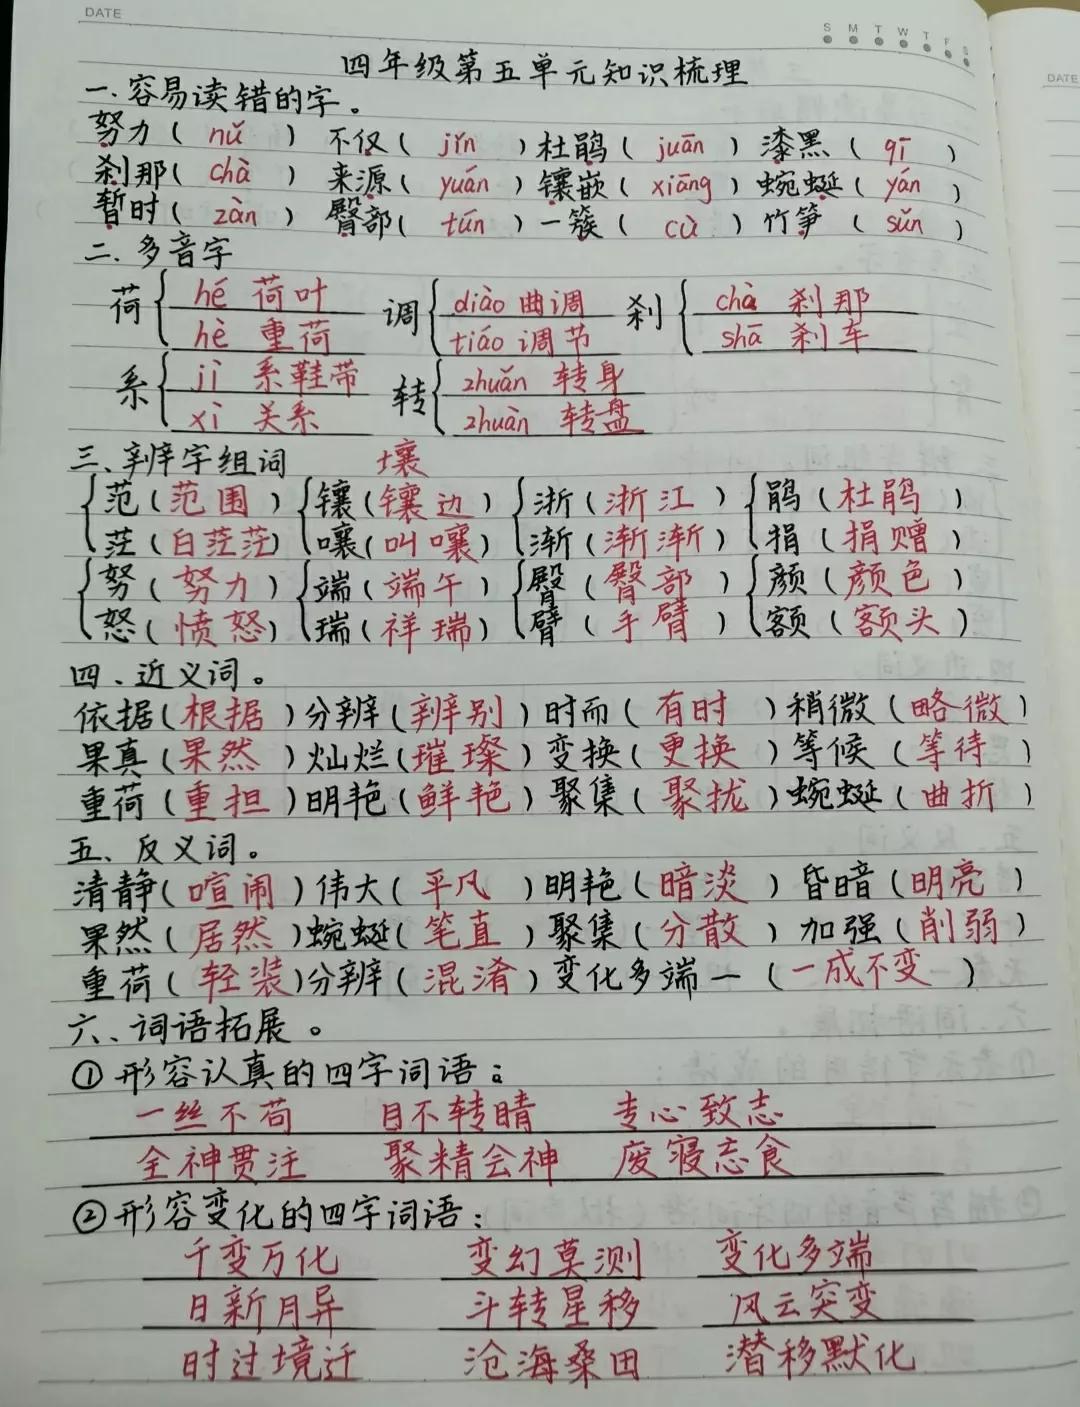 DATE
S M T W T F S
DATE
四年级第五单元知识梳理
一.容易读错的字。
努力( nǔ ) 不仅( jǐn ) 杜鹃( juān ) 漆黑( qī )
刹那( chà ) 来源( yuán ) 镶嵌( xiāng ) 蜿蜒( yán )
暂时( zàn ) 臀部( tún ) 一簇( cù ) 竹笋( sǔn )
二.多音字
荷 hé 荷叶 调 diào 曲调 刹 chà 刹那
hè 重荷 tiáo 调节 shā 刹车
系 jì 系鞋带 转 zhuǎn 转身
xì 关系 zhuàn 转盘
三、辨字组词 壤
范(范围) 镶(镶边) 浙(浙江) 鹃(杜鹃)
茫(白茫茫) 嚷(叫嚷) 渐(渐渐) 捐(捐赠)
努(努力) 端(端午) 臀(臀部) 颜(颜色)
怒(愤怒) 瑞(祥瑞) 臂(手臂) 额(额头)
四、近义词。
依据(根据)分辨(辨别)时而(有时)稍微(略微)
果真(果然)灿烂(璀璨)变换(更换)等候(等待)
重荷(重担)明艳(鲜艳)聚集(聚拢)蜿蜒(曲折)
五、反义词。
清静(喧闹)伟大(平凡)明艳(暗淡)昏暗(明亮)
果然(居然)蜿蜒(笔直)聚集(分散)加强(削弱)
重荷(轻装)分辨(混淆)变化多端一(一成不变)
六、词语拓展。
①形容认真的四字词语:
一丝不苟 目不转睛 专心致志
全神贯注 聚精会神 废寝忘食
②形容变化的四字词语:
千变万化 变幻莫测 变化多端
日新月异 斗转星移 风云突变
时过境迁 沧海桑田 潜移默化